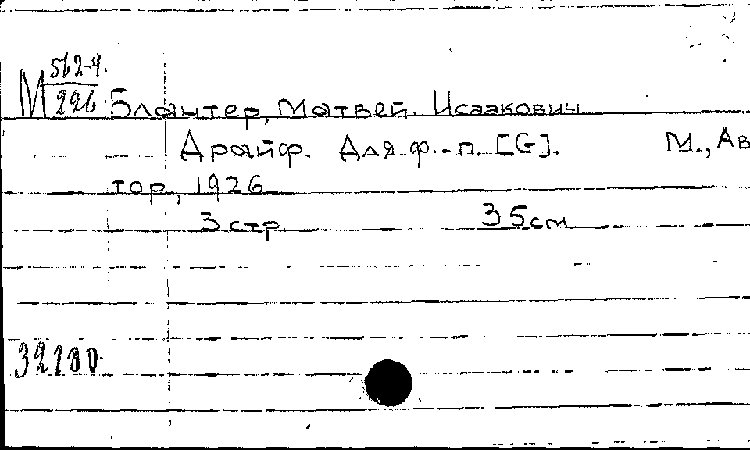 М 562-4
226
Блантер, Матвей Исаакович
Драйф. Для ф.-п. [G]. М., Ав
тор, 1926
3 стр 35 см
32180